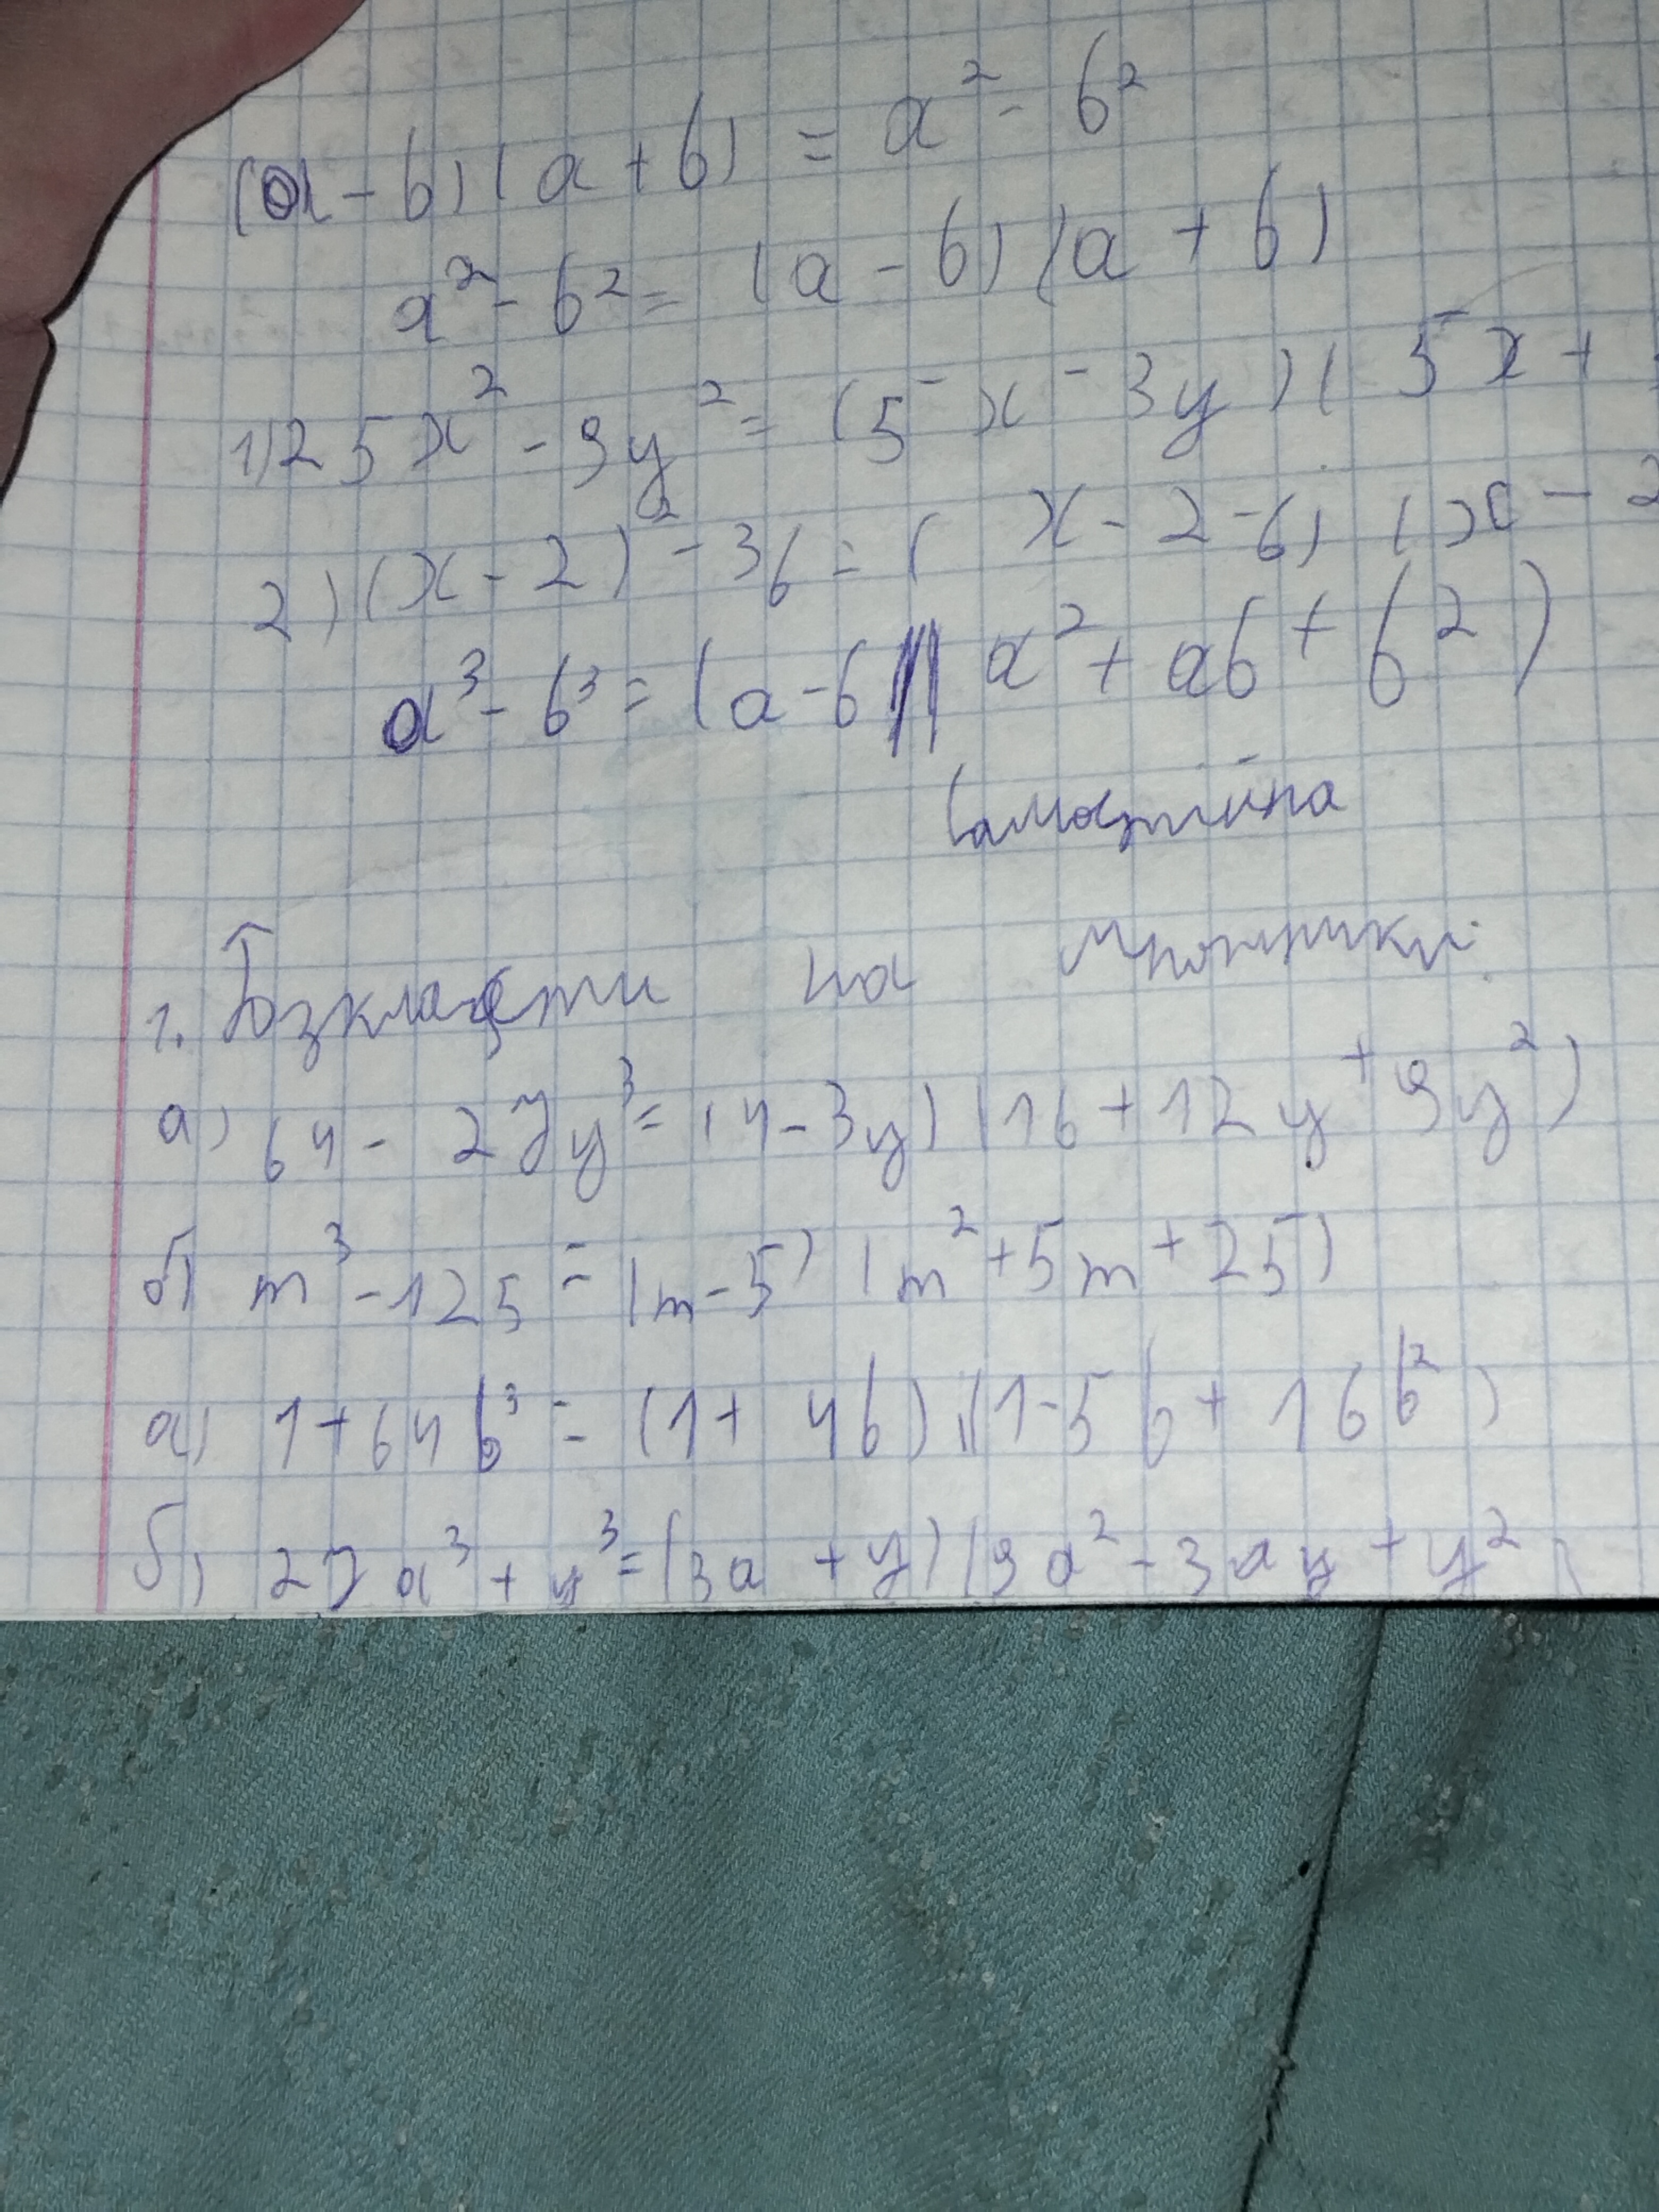 (a - b)(a + b) = a² - b²
a² - b² = (a - b)(a + b)
1) 25x² - 9y² = (5x - 3y)(5x +
2) (x - 2)² - 36 = (x - 2 - 6)(x - 2
a³ - b³ = (a - b)(a² + ab + b²)
Самостійна
1. Розкласти на множники:
а) 64 - 27y³ = (4 - 3y)(16 + 12y + 9y²)
б) m³ - 125 = (m - 5)(m² + 5m + 25)
а) 1 + 64b³ = (1 + 4b)(1 - 5b + 16b²)
б) 27a³ + y³ = (3a + y)(9a² - 3ay + y²)